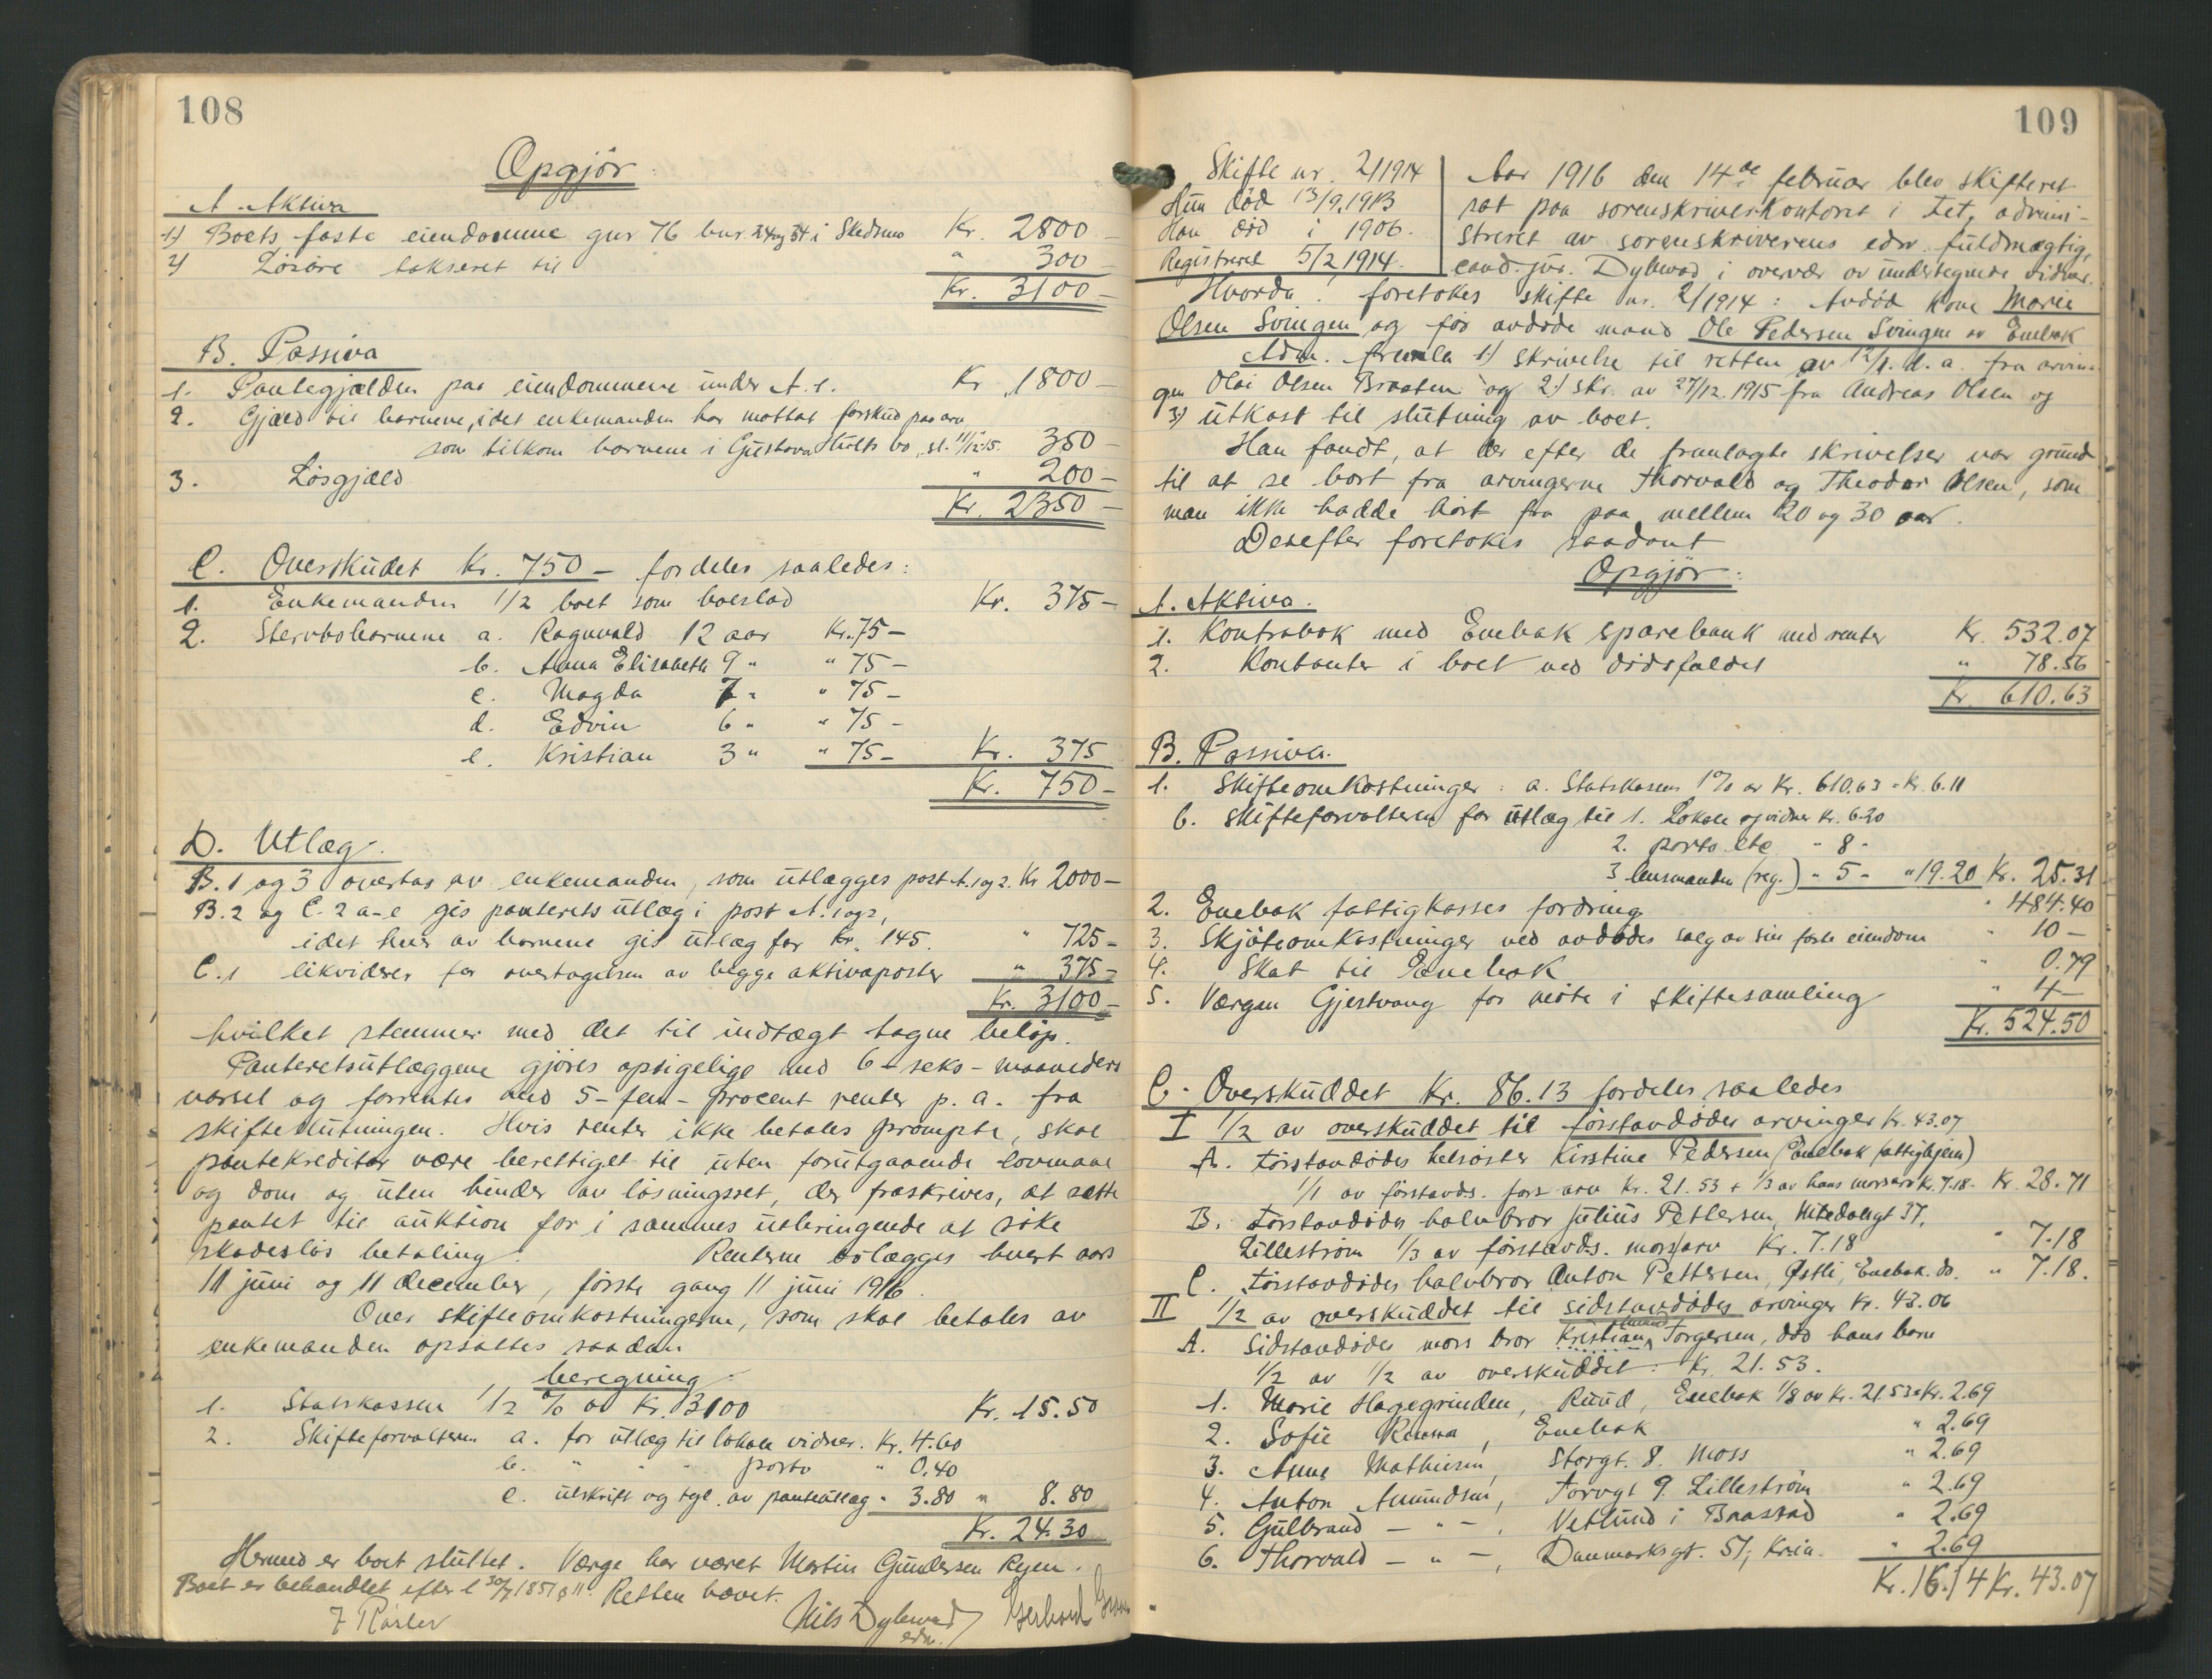 108
Opgjör:
A. Aktiva
1) Boets faste eiendomme gnr 76 bnr. 24 og 34 i Skedsmo Kr. 2800 –
2) Lösöre takseret til " 300 –
Kr. 3100 –
B. Passiva
1. Pantegjælden paa eiendommene under A. 1. Kr. 1800 –
2. Gjæld til barnene, idet enkemanden har mottat forskud paa arv
som tilkom barnene i Gustava Hults bo, sl. 11/12 15. 350 –
3. Lösgjæld " 200 –
Kr. 2350 –
C. Overskudet Kr. 750 – fordeles saaledes:
1. Enkemanden 1/2 boet som boeslod Kr. 375 –
2. Stervbobarnene a. Ragnvald 12 aar Kr. 75 –
b. Anna Elisabeth 9 " " 75 –
c. Magda 7 " " 75 –
d. Edvin 6 " " 75 –
e. Kristian 3 " " 75 – Kr. 375
Kr. 750 –
D. Utlæg.
B. 1 og 3 overtas av enkemanden, som utlægges post A. 1 og 2. Kr 2000 –
B. 2 og C. 2 a–e gis panterets utlæg i post A. 1 og 2,
idet hver av barnene gis utlæg for Kr. 145. " 725 –
C. 1 likviderer for overtagelsen av begge aktivaposter " 375 –
Kr. 3100 –
hvilket stemmer med det til indtægt tagne belöp.
Panteretsutlæggene gjöres opsigelige med 6 – seks – maaneders
varsel og forrentes med 5 – fem – procent renter p. a. fra
skifteslutningen. Hvis renter ikke betales prompte, skal
pantekreditor være berettiget til uten forutgaaende lovmaal
og dom og uten hinder av lösningsret, der fraskrives, at sætte
pantet til auktion for i sammes utbringende at söke
skadeslös betaling. Renterne erlægges hvert aars
11 juni og 11 december, förste gang 11 juni 1916.
Over skifteomkostningerne, som skal betales av
enkemanden opsattes saadan
beregning:
1. Statskassen 1/2 % av Kr. 3100 Kr. 15.50
2. Skifteforvalteren a. for utlæg til lokale vidner. Kr. 4.60
b. " " " porto " 0.40
c. utskrift og tgl. av panteutlæg " 3.80 " 8.80
Kr. 24.30
Hermed er boet sluttet. Værge har været Martin Gundersen Rejen.
Boet er behandlet efter l 30/7 1851 § 11. Retten hævet.
Nils Dybwad Gerhard
edsv.
109
Skifte nr. 2/1914
Hun död 13/9. 1913
Han död i 1906.
Registreret 5/2 1914.
Aar 1916 den 14de februar blev skifteret
sat paa sorenskriverkontoret i Fet, admini-
streret av sorenskriverens edsv. fuldmægtig,
cand. jur. Dybwad i overvær av undertegnede vidner.
Hvorda! foretokes skifte nr. 2/1914: Avdöd kone Marie
Olsen Svingen og för avdöde mand Ole Pedersen Svingen av Enebak
Adm. fremla 1) skrivelse til retten av 12/1. d. a. fra arvin-
gen Olai Olsen Braaten og 2) skr. av 27/12. 1915 fra Andreas Olsen og
3) utkast til slutning av boet.
Han fandt, at der efter de fremlagte skrivelser var grund
til at se bort fra arvingerne Thorvald og Theodor Olsen, som
man ikke hadde hört fra paa mellem 20 og 30 aar.
Derefter foretokes saadant
Opgjör:
A. Aktiva.
1. Kontrabok med Enebak sparebank med renter Kr. 532.07
2. Kontanter i boet ved dödsfaldet " 78.56
Kr. 610.63
B. Passiva.
1. Skifteomkostninger: a. Statskassen 1% av Kr. 610.63 = Kr. 6.11
b. skifteforvalteren for utlæg til 1. Lokale og vidner Kr. 6.20
2. porto etc " 8 –
3 lensmanden (reg.) " 5 – " 19.20 Kr. 25.31
2. Enebak fattigkasses fordring " 484.40
3. Skjöteomkostninger ved avdödes salg av sin faste eiendom " 10 –
4. Skat til Enebak " 0.79
5. Værgen Gjestvang for möte i skiftesamling " 4 –
Kr. 524.50
C. Overskuddet Kr. 86.13 fordeles saaledes
I 1/2 av overskuddet til förstavdödes arvinger Kr. 43.07
A. Förstavdödes helsöster Kirstine Pedersen (Enebak fattighjem)
1/1 av förstavds. fars arv Kr. 21.53 + 1/3 av hans morsarv Kr. 7.18 – Kr. 28.71
B. Förstavdödes halvbror Julius Pettersen, Nitedalsgt 37,
Lilleström 1/3 av förstavds. morsarv Kr. 7.18 " 7.18
C. Förstavdödes halvbror Anton Pettersen, Östli, Enebak. do. " 7.18.
II 1/2 av overskuddet til sidstavdödes arvinger Kr. 43.06
A. Sidstavdödes mors bror Kristian Torgersen, död hans barn
1/2 av 1/2 av overskuddet: Kr. 21.53.
1. Marie Hagegrinden, Ruud, Enebak 1/8 av Kr. 21.53 = Kr. 2.69
2. Sofie , Enebak " 2.69
3. Anne Mathisen, Storgt. 8. Moss " 2.69
4. Anton Amundsen, Torvgt 9. Lilleström " 2.69
5. Gulbrand – " –, Vetlund i Baastad " 2.69
6. Thorvald – " –, Danmarksgt. 51, Kria. " 2.69
Kr. 16.14 Kr. 43.07